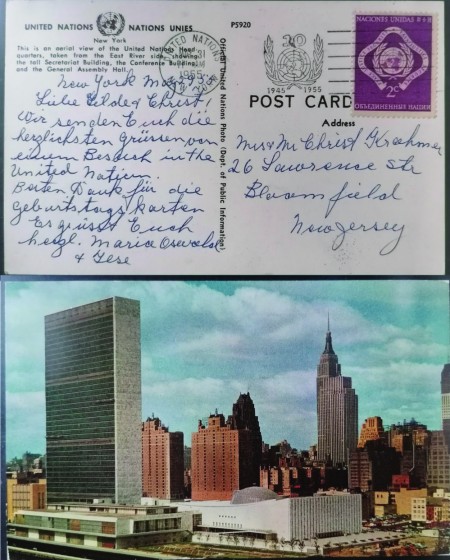 UNITED NATIONS NATIONS UNIES
New York
This is an aerial view of the United Nations Head-
quarters, taken from the East River side, showing
the tall Secretariat Building, the Conference Building,
and the General Assembly Hall.
PS920
Official United Nations Photo (Dept. of Public Information)
New York
Liebe Hilde & Christ!
Wir senden Euch die
herzlichsten Grüssen von
einem Besuch in the
United Nation.
Besten Dank für die
Geburtstags karten
Es grüsst Euch
herzl. Maria Oswald
&
UNITED NATIONS
31
1955
1945 1955
NACIONES UNIDAS
2c
ОБЪЕДИНЕННЫЕ НАЦИИ
POST CARD
Address
Mrs & Mr Christ Kraehmer
26 Lawrence Str
Bloomfield
New Jersey